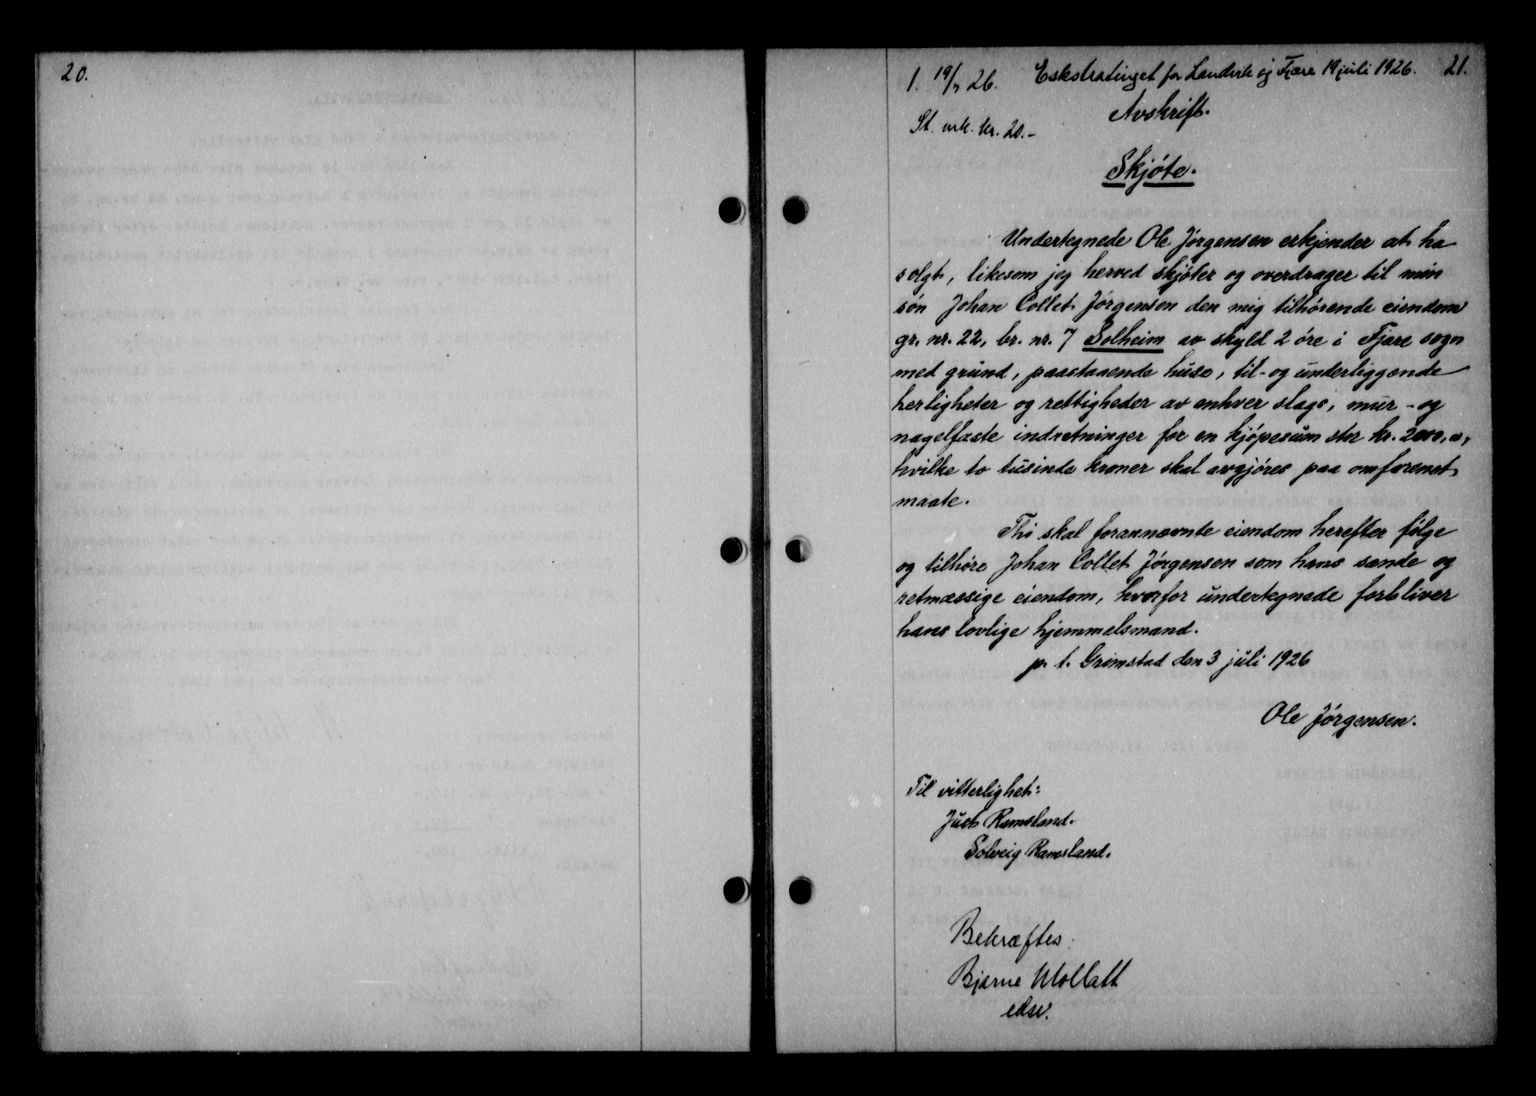 20.
1. 19/7 26. Eskstratinget for Landvik og Fjære 19 juli 1926. 21.
Avskrift.
St. mk. kr. 20.-
Skjøte.
Undertegnede Ole Jørgensen erkjender at ha
solgt, likesom jeg herved skjøter og overdrager til min
søn Johan Collet Jørgensen den mig tilhørende eiendom
gr. nr. 22, br. nr. 7 Solheim av skyld 2 øre i Fjære sogn
med grund, paastaaende huse, til- og underliggende
herligheter og rettigheder av enhver slags, mur- og
nagelfaste indretninger for en kjøpesum stor kr. 2000,
hvilke to tusinde kroner skal avgjøres paa omforenet
maate.
Thi skal forannævnte eiendom herefter følge
og tilhøre Johan Collet Jørgensen som hans sande og
retmæssige eiendom, hvorfor undertegnede forbliver
hans lovlige hjemmelsmand.
p. t. Grimstad den 3 juli 1926
Ole Jørgensen.
Til vitterlighet:
Just Ramsland.
Solveig Ramsland.
Bekræftes:
Bjarne Mollatt
edsv.